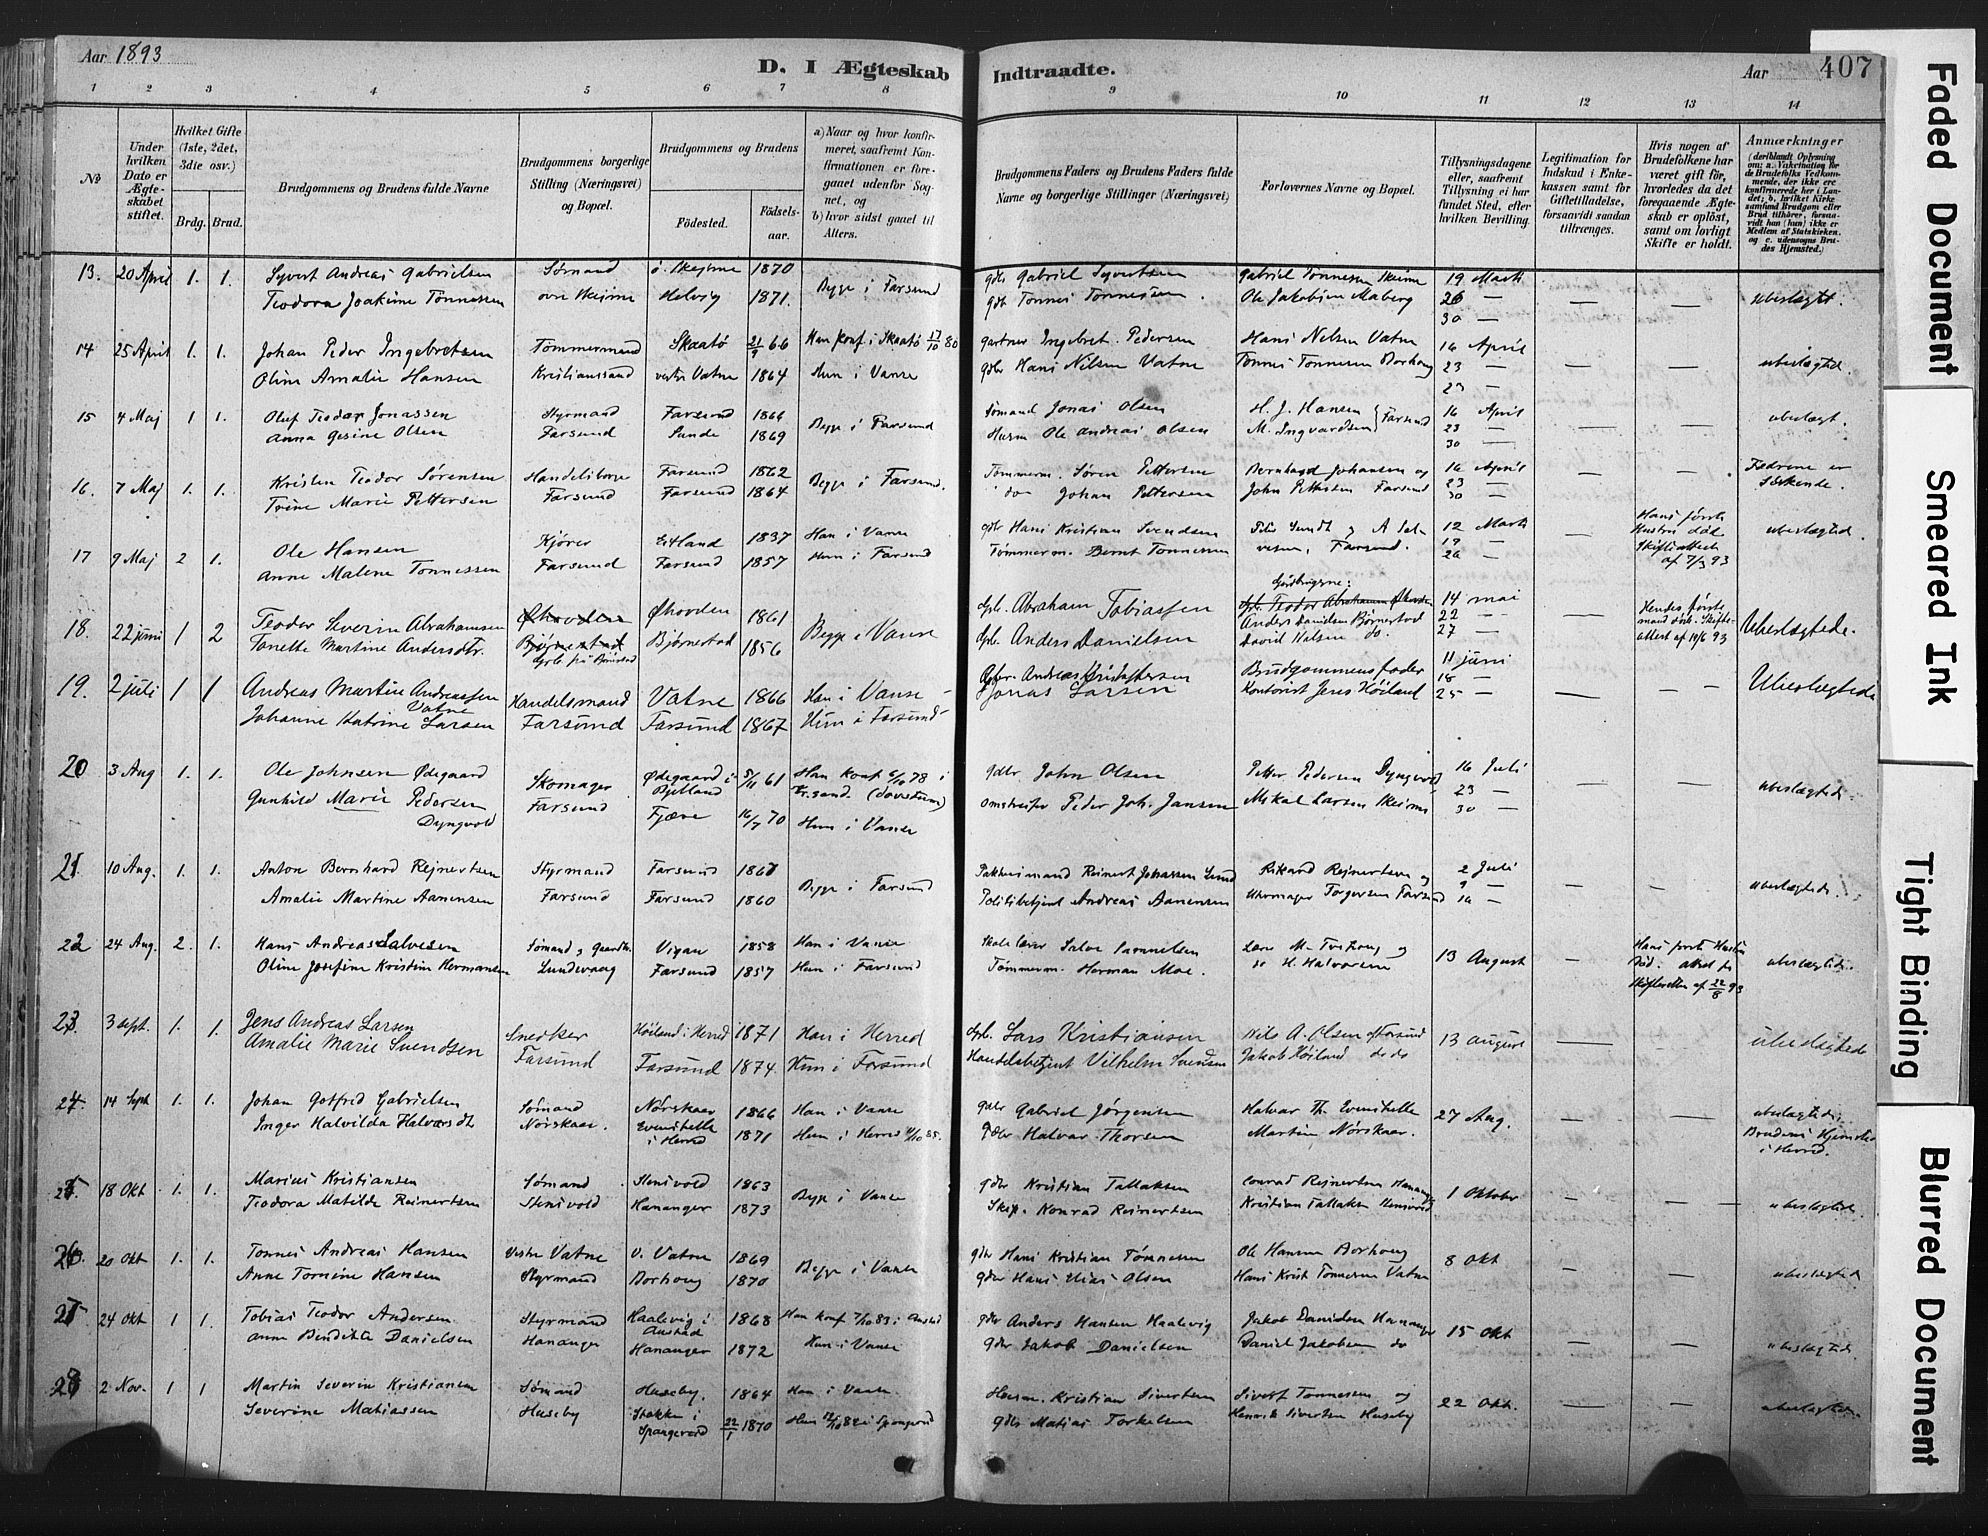 Aar 1893
D. I Ægteskab Indtraadte.
Aar 407
1 2 3 4 5 6 7 8 9 10 11 12 13 14
No
Under hvilken Dato er Ægteskabet stiftet.
Hvilket Gifte (1ste, 2det, 3die osv.)
Brdg. Brud.
Brudgommens og Brudens fulde Navne
Brudgommens borgerlige Stilling (Næringsvei) og Bopæl.
Brudgommens og Brudens
Födested. Födsels-aar.
a) Naar og hvor konfirmeret, saafremt Konfirmationen er foregaaet udenfor Sognet, og
b) hvor sidst gaaet til Alters.
Brudgommens Faders og Brudens Faders fulde Navne og borgerlige Stillinger (Næringsvei)
Forlovernes Navne og Bopæl.
Tillysningsdagene eller, saafremt Tillysning ei har fundet Sted, efter hvilken Bevilling.
Legitimation for Indskud i Enkekassen samt for Giftetilladelse, forsaavidt saadan tiltrænges.
Hvis nogen af Brudefolkene har været gift för, hvorledes da det foregaaende Ægteskab er oplöst, samt om lovligt Skifte er holdt.
Anmærkninger
(deriblandt Oplysning om: a. Vakcination for de Brudefolks Vedkommende, der ikke ere konfirmerede her i Landet; b. hvilket Kirkesamfund Brudgom eller Brud tilhörer, forsaavidt han (hun) ikke er Medlem af Statskirken, og c. udensogns Brudes Hjemsted.)
13. 20 April 1. 1. Syvert Andreas Gabrielsen Sömand ö. Skejme 1870 Begge i Farsund gdb Gabriel Syvertsen Gabriel Tönnessen Skeime 19 Marts
Teodora Joakime Tönnessen ovre Skejme Helvig 1871. gdb Tönnes Tönnessen. Ole Jakobsen Maberg 26 — — — ubeslægt.
30 —
14 25 April 1. 1. Johan Peder Ingebretsen Tömmermand Skaatö 21/9 66 Han konf. i Skaatö 17/10 80 gartner Ingebret Pedersen Hans Nelsen Vatne 16 April
Oline Amalie Hansen Kristianssand vestre Vatne 1864 Hun i Vanse gdb Hans Nilsen Vatne Tönnes Tönnesen Borhoug 23 — — — ubeslægtede.
23 —
15 4 Maj 1 1. Oluf Teodor Jonassen Styrmand Farsund 1866 Begge i Farsund Sömand Jonas Olsen H. J. Hansen 16 April
Anna Gesine Olsen Farsund Sunde 1869 Husm Ole Andreas Olsen M. Ingvardsen Farsund 23 — — — ubeslægt.
30 —
16. 7 Maj 1. 1. Kristen Teodor Sörensen Handelsborger Farsund 1862 Begge i Farsund. Tömmerm. Sören Pettersen Bernhard Johansen og 16 April Fædrene er
Trine Marie Pettersen Farsund Farsund 1864 do Johan Pettersen John Pettersen Farsund 23 — — — Söskende.
30 —
17 9 Maj 2 1. Ole Hansen Kjörer Eitland 1837 Han i Vanse gdb Hans Kristian Svendsen Peder Lundt og A Salvesen, Farsund. 12 Marts — Hans förste Hustru död Skifteattest af 7/3 93 ubeslægtede
Anne Malene Tönnessen Farsund Farsund 1857 Hun i Farsund Tömmerm. Bernt Tönnessen 19 —
26 —
18. 22 juni 1 2 Teodor Severin Abrahamsen Öhovden Öhovden 1861 Begge i Vanse Gbr. Abraham Tobiassen Gaardbrugerne: 14 mai — Hendes förste mand död. Skifteattest af 19/6 93 Ubeslægtede.
Tonette Martine Andersdtr. Björnestad Björnestad 1856 Gbr. Anders Danielsen Anders Danielsen Björnestad 22 —
David Halsen do. 27 —
19. 2 juli 1 1 Andreas Martin Andreassen Vatne Handelsmand Vatne 1866 Han i Vanse Gbr. Andreas Kristoffersen Brudgommens fader 11 juni
Johanne Katrine Larsen Farsund Farsund 1867 Hun i Farsund Jonas Larsen Kontorist Jens Höiland 18 — — — Ubeslægtede
25 —
20 3 Aug 1. 1. Ole Johnsen Ödegaard Skomager Ödegaard i Bjelland 5/11 61 Han konf 6/10 78 i Kr.sand. gdbr John Olsen Petter Pedersen Dyngvold 16 Juli
Gunhild Marie Pedersen Dyngvold Farsund Fjære 16/7 70 Hun i Vanse Peder Joh. Jansen Mikal Larsen Skeime 23 — — — ubeslægtede.
30 —
21 10 Aug. 1. 1. Anton Bernhard Rejnertsen Styrmand Farsund 1860 Begge i Farsund Reinert Johassen Lund Rikard Rejnertsen og 2 Juli
Amalie Martine Aanensen Farsund Farsund 1860 Politibetjent Andreas Aanensen Uhrmager Torgersen Farsund 9 — — — ubeslægtede.
16 —
22 24 Aug. 2. 1. Hans Andreas Salvesen Sömand, Vigan 1858 Han i Vanse Skolelærer Salve Samuelsen Lære M. og 13 August — Hans förste Hustru död. attest fra Skifteretten af 22/8 93 ubeslægtede.
Oline Josefine Kristine Hermansen Lundevaag Farsund 1857 Hun i Farsund Tömmerm. Herman Moe. do H. Halvorsen
23. 3 Sept. 1. 1. Jens Andreas Larsen Snedker Höiland i Herred 1871 Han i Herred Gbr. Lars Kristiansen Nils A. Olsen af Farsund 13 August — — ubeslægtede
Amalie Marie Svendsen Farsund Farsund 1874 Hun i Farsund Handelsbetjent Vilhelm Svendsen Jakob Höiland do do
24. 14 Sept 1. 1. Johan Gotfred Gabrielsen Sömand Nörskaar 1866 Han i Vanse gdbr Gabriel Jörgensen Halvar Th. Evenstelle 27 Aug. — — ubeslægtede.
Inger Halvilda Halvorsdt Nörskaar. Evenstelle i Herred 1871 Hun i Herred 4/10 85. gdbr Halvar Thorsen Martin Nörskaar. Brudens Hjemsted i Herred.
25. 18 Okt 1. 1. Marius Kristiansen Sömand Stensvold 1863 Begge i Vanse gdbr Kristian Tallaksen Conrad Rejnertsen Hananger 1 Oktober — — ubeslægtede.
Teodora Matilde Reinertsen Stensvold Hananger 1873 Skip. Konrad Reinertsen Kristian Tallaksen Stensvold
26. 20 Okt 1. 1. Tönnes Andreas Hansen Vestre Vatne V. Vatne 1869 Begge i Vanse gdbr Hans Kristian Tönnesen Ole Hansen Borhoug 8 Okt — — ubeslægtede
Anne Tomine Hansen Styrmand Borhoug 1870 gdbr Hans Elias Olsen Hans Krist Tönnesen Vatne
27 24 Okt 1 1. Tobias Teodor Andersen Styrmand Haalevig i Austad 1868 Han konf 7/10 83 i Austad gdbr Anders Hansen Haalevig Jakob Danielsen Hananger 15 Okt — — ubeslægtede.
Anne Bendikte Danielsen Hananger Hananger 1872 Hun i Vanse gdbr Jakob Danielsen Daniel Jakobsen do
28 2 Nov. 1 1 Martin Severin Kristiansen Sömand Huseby. 1864 Han i Vanse. Husm. Kristian Sivertsen Sivert Tönnesen og 22 Okt. — — ubeslægtede.
Severine Matiassen Huseby Stokke i Spangereid 22/1 1870 Hun 12/10 84 i Spangereid gdbr Matias Torkelsen Henrik Sivertsen Huseby
Faded Document
Smeared Ink
Tight Binding
Blurred Document